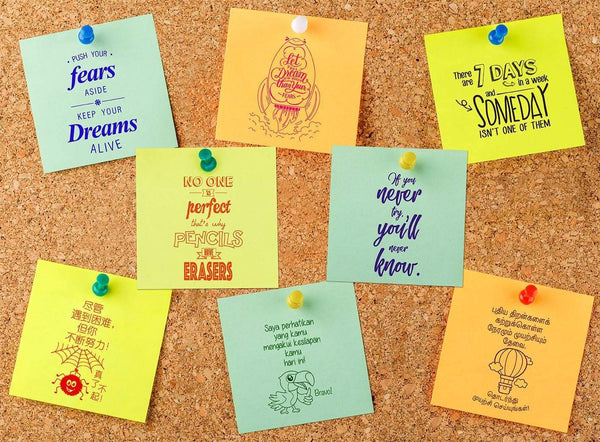 PUSH YOUR
fears
ASIDE
KEEP YOUR
Dreams
ALIVE
Let
Dream
than Your
FEARS
There are 7 DAYS in a week
and
SOMEDAY
ISN'T ONE OF THEM
NO ONE
is
perfect
that's why
PENCILS
ERASERS
If you
never
try,
you'll
never
know.
尽管
遇到困难,
但你
不断努力!
真了不起!
Saya perhatikan
yang kamu
mengakui kesilapan
kamu
hari ini!
Bravo!
புதிய திறன்களைக்
கற்றுக்கொள்ள
நேரமும் முயற்சியும்
தேவை.
தொடர்ந்து
முயற்சி செய்யுங்கள்!